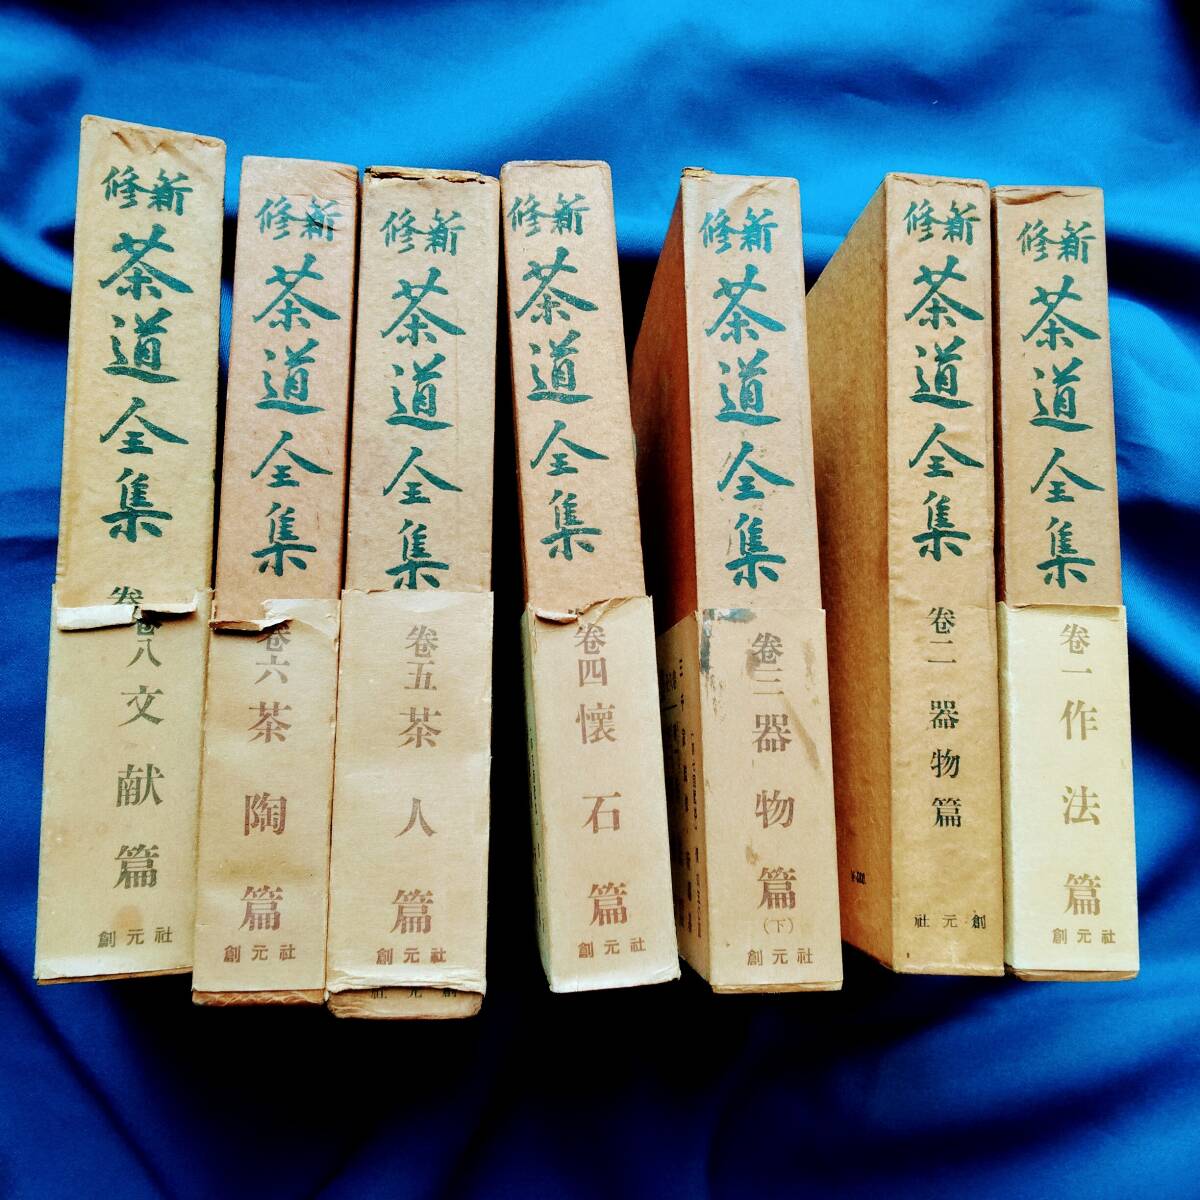 新修
茶道全集
巻一 作法篇
創元社
新修
茶道全集
巻二 器物篇
創元社
新修
茶道全集
巻三 器物篇
(下)
創元社
新修
茶道全集
巻四 懐石篇
創元社
新修
茶道全集
巻五 茶人篇
創元社
新修
茶道全集
巻六 茶陶篇
創元社
新修
茶道全集
巻八 文献篇
創元社